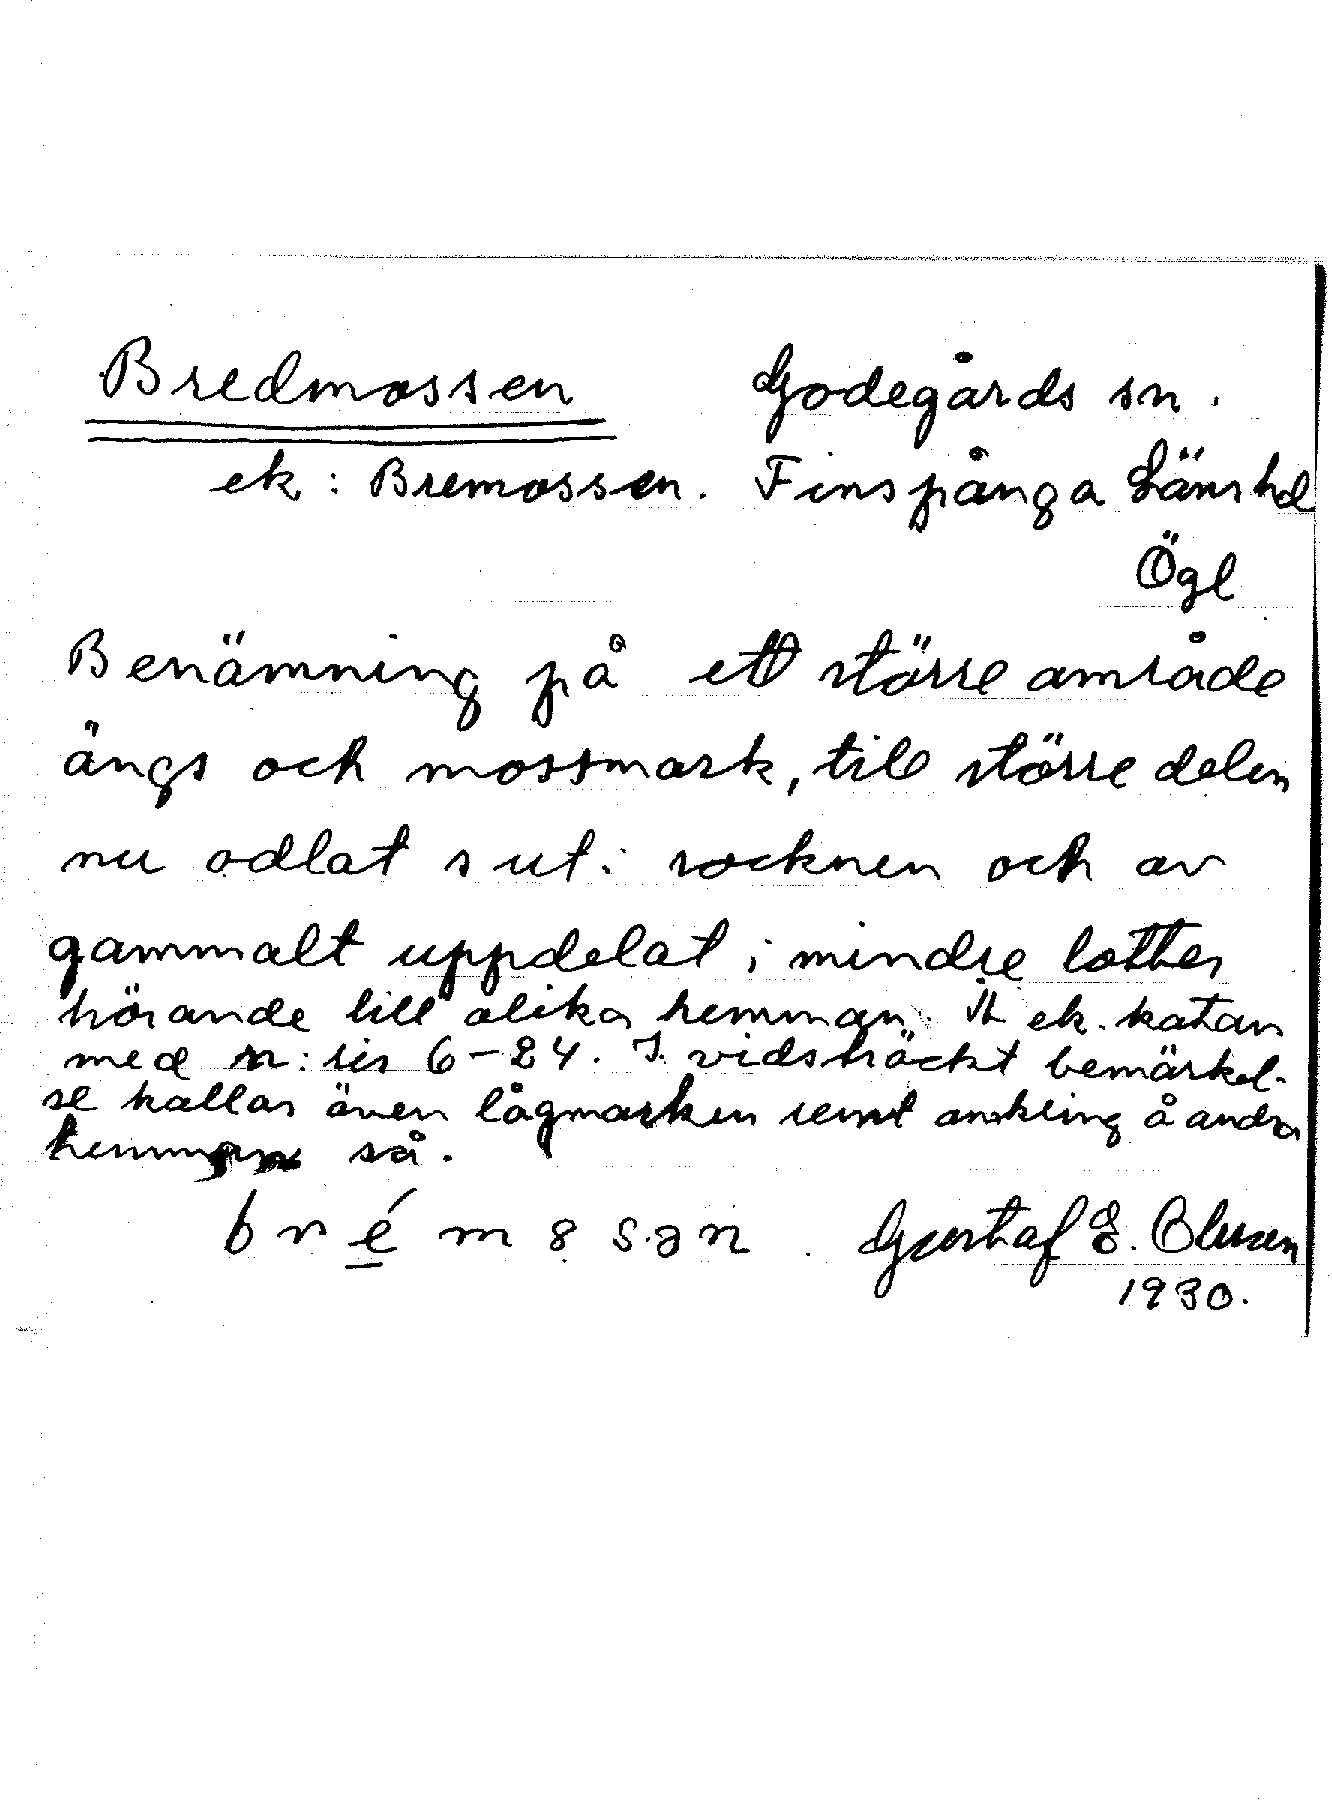 Bredmossen Godegårds sn.
ek: Bremossen. Finspånga Länshd
Ögl
Benämning på ett större område
ängs och mossmark, till större delen
nu odlat s ut i socknen och av
gammalt uppdelat i mindre lotter
hörande till olika hemman. It ek. kartan
med n:ris 6-24. I. vidsträckt bemärkel-
se kallas även lågmarken runt omkring å andra
hemman så.
b r é m s . ə n . Gustaf E. Olsson
1930.